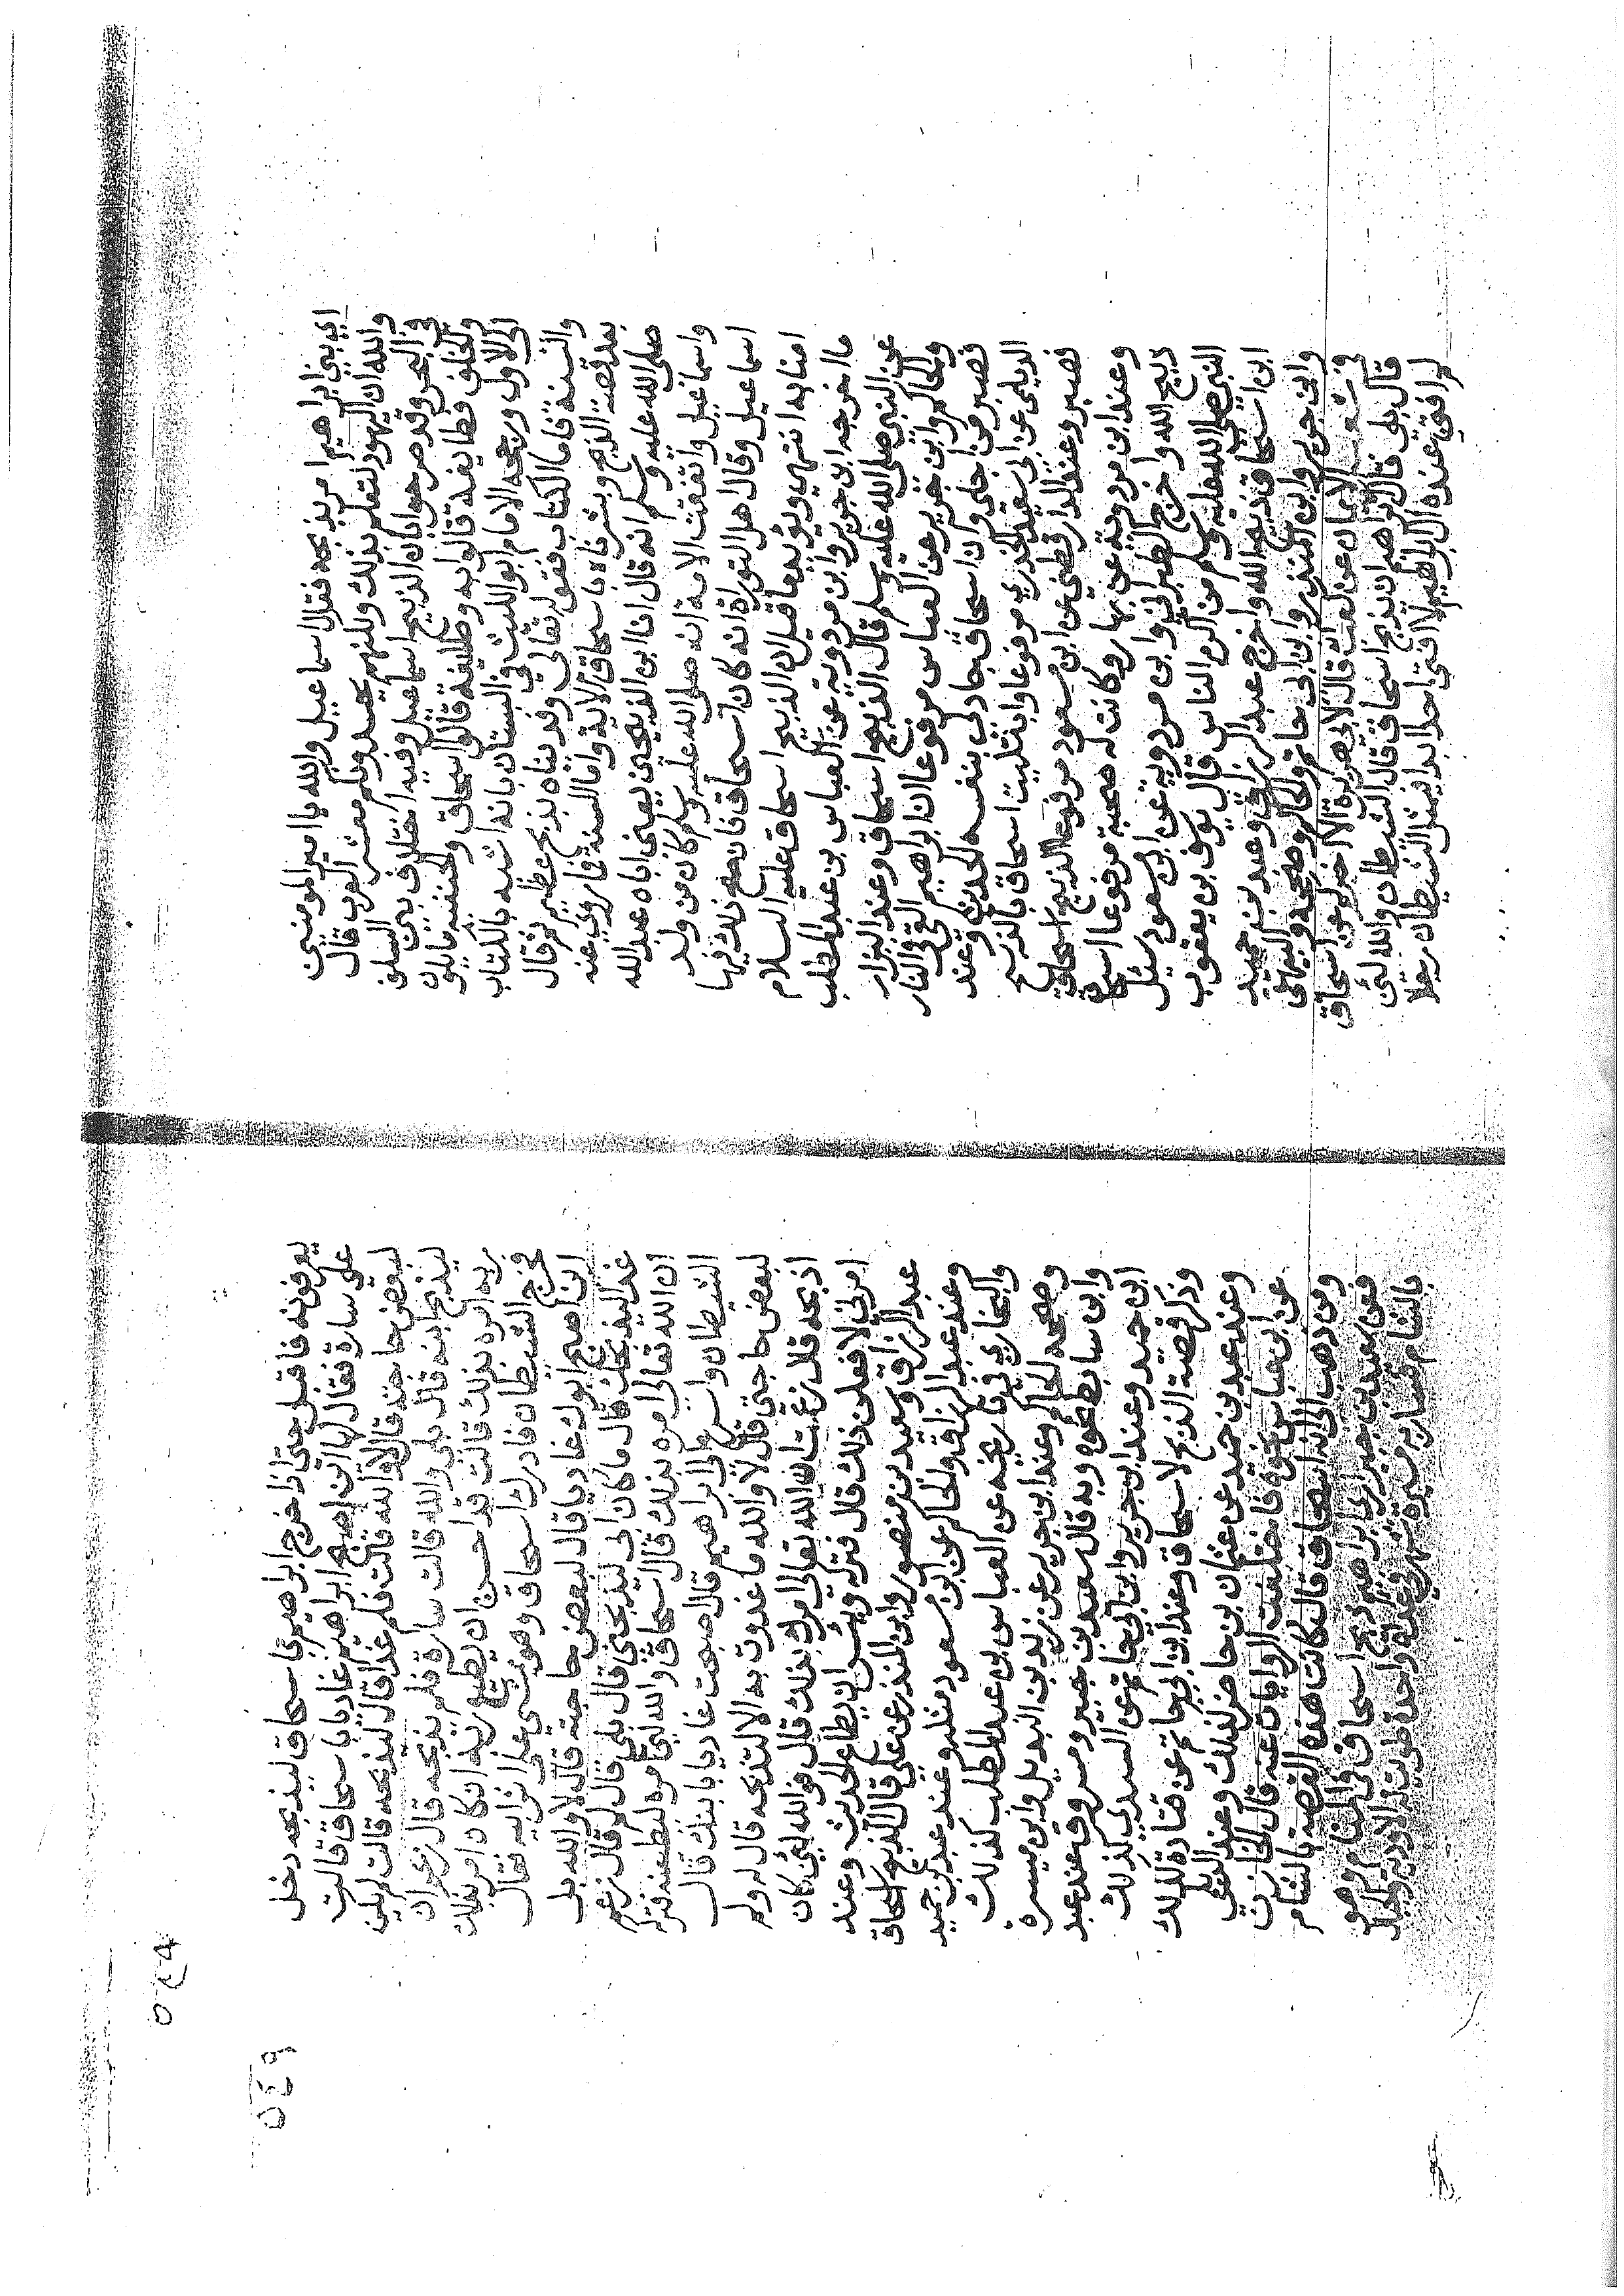 اي بني ابراهيم امر بذبحه فقال اسماعيل والله يا امير المومنين
والله ان اليهود لتعلم بذلك ولكنهم يحسدونكم معشر العرب قال
في البحر وقد صرحوا بان الذبيح اسماعيل وفيه اختلاف بين السلف
والخلف فطايفة قالوا به وطايفة قالوا اسحاق والحنفية مايلون
الى الاول ورجحه الامام ابو الليث في البستان بانه اشبه بالكتاب
والسنة فاما الكتاب فقوله تعالى وفديناه بذبح عظيم ثم قال
بعد قصة الذبح وبشرناه باسحاق الاية واما السنة فما روي عنه
صلى الله عليه وسلم انه قال انا ابن الذبيحين يعني اباه عبد الله
واسماعيل واتفقت الامة انه صلى الله عليه وسلم كان من ولد
اسماعيل وقال اهل التوراة انه كان اسحاق فان صح ذلك فيها
امنا به انتهى ويؤيد ما قيل ان الذبيح اسحاق عليه السلام
ما اخرجه ابن جرير وابن مردويه عن العباس بن عبد المطلب
عن النبي صلى الله عليه وسلم قال الذبيح اسحاق وعند البزار
والحاكم وابن جرير عن العباس مرفوعا ان ابراهيم القي في النار
فصبر من اجلي وان اسحاق جاد لي بنفسه الحديث وعند
الديلمي عن ابي سعيد الخدري مرفوعا وابتليت اسحاق بالذبح
فصبر وعند الدارقطني عن ابن مسعود مرفوعا الذبيح اسحاق
وعند ابن مردويه عن بهار وكانت له صحبة مرفوعا اسحاق
ذبيح الله واخرج الطبراني وابن مردويه عن ابن مسعود سئل
النبي صلى الله عليه وسلم من اكرم الناس قال يوسف بن يعقوب
ابن اسحاق ذبيح الله واخرج عبد الرزاق وعبد بن حميد
وابن جرير وابن المنذر وابن ابي حاتم والحاكم وصححه والبيهقي
في شعب الايمان عن كعب انه قال لابي هريرة الا اخبرك عن اسحاق
قال بلى قال ابراهيم ان يذبح اسحاق قال الشيطان والله لئن
لم افتن عنده ال ابراهيم لا افتن احدا ابدا فتمثل الشيطان رجلا
يعرفونه فاقبل حتى اذا خرج ابراهيم باسحاق ليذبحه دخل
على سارة فقال لها اين اصبح ابراهيم غاديا باسحاق قالت
لبعض حاجته قال لا والله قالت فلم غدا قال ليذبحه قالت لم يكن
ليذبح ابنه قال بلى والله قالت سارة فلم يذبحه قال زعم ان
ربه امره بذلك قالت قد احسن ان يطيع ربه ان كان امره بذلك
فخرج الشيطان فادرك اسحاق وهو يمشي على اثر ابيه فقال
اين اصبح ابوك غاديا قال لبعض حاجته قال لا والله بل
غدا بك ليذبحك قال ما كان ابي ليذبحني قال بلى قال لم قال زعم
ان الله تعالى امره بذلك قال اسحاق والله لئن امره ليطيعنه فتركه
الشيطان واسرع الى ابراهيم فقال اصبحت غاديا بابنك قال
لبعض حاجتي قال لا والله ما غدوت به الا لتذبحه قال له ولم
اذبحه قال زعمت ان الله تعالى امرك بذلك قال فوالله لئن كان
امرني لافعلن ذلك قال فتركه ويئس ان يطاع الحديث وعند
عبد الرزاق وسعيد بن منصور وابن المنذر عن علي قال الذبيح اسحاق
وعند عبد الرزاق والحاكم عن ابن مسعود مثله وعند عبد بن حميد
والبخاري في تاريخه عن العباس بن عبد المطلب كذلك
وصححه الحاكم وعند ابن جرير عن زيد بن وابن ميسرة
وابن سابط نحوه وبه قال سعيد بن جبير ومسروق عند عبد
ابن حميد وعند ابن جرير وابن ابي حاتم عن السدي كذلك
وذكر قصة الذبح لاسحاق وعند ابن ابي حاتم عن قتادة كذلك
وعند عبد بن حميد عن عثمان بن حاضر كذلك وعند
عن ابن عباس نحوه فاختلفت الروايات عنه قال الخازن
ومن ذهب الى انه اسحاق قال كانت هذه القصة بالشام
فعن سعيد بن جبير راى ابراهيم ذبح اسحاق في المنام وهو
بالشام فسار به مسيرة شهر في غداة واحدة طويت له الاودية والجبال
٥٤٨
٥٤٩